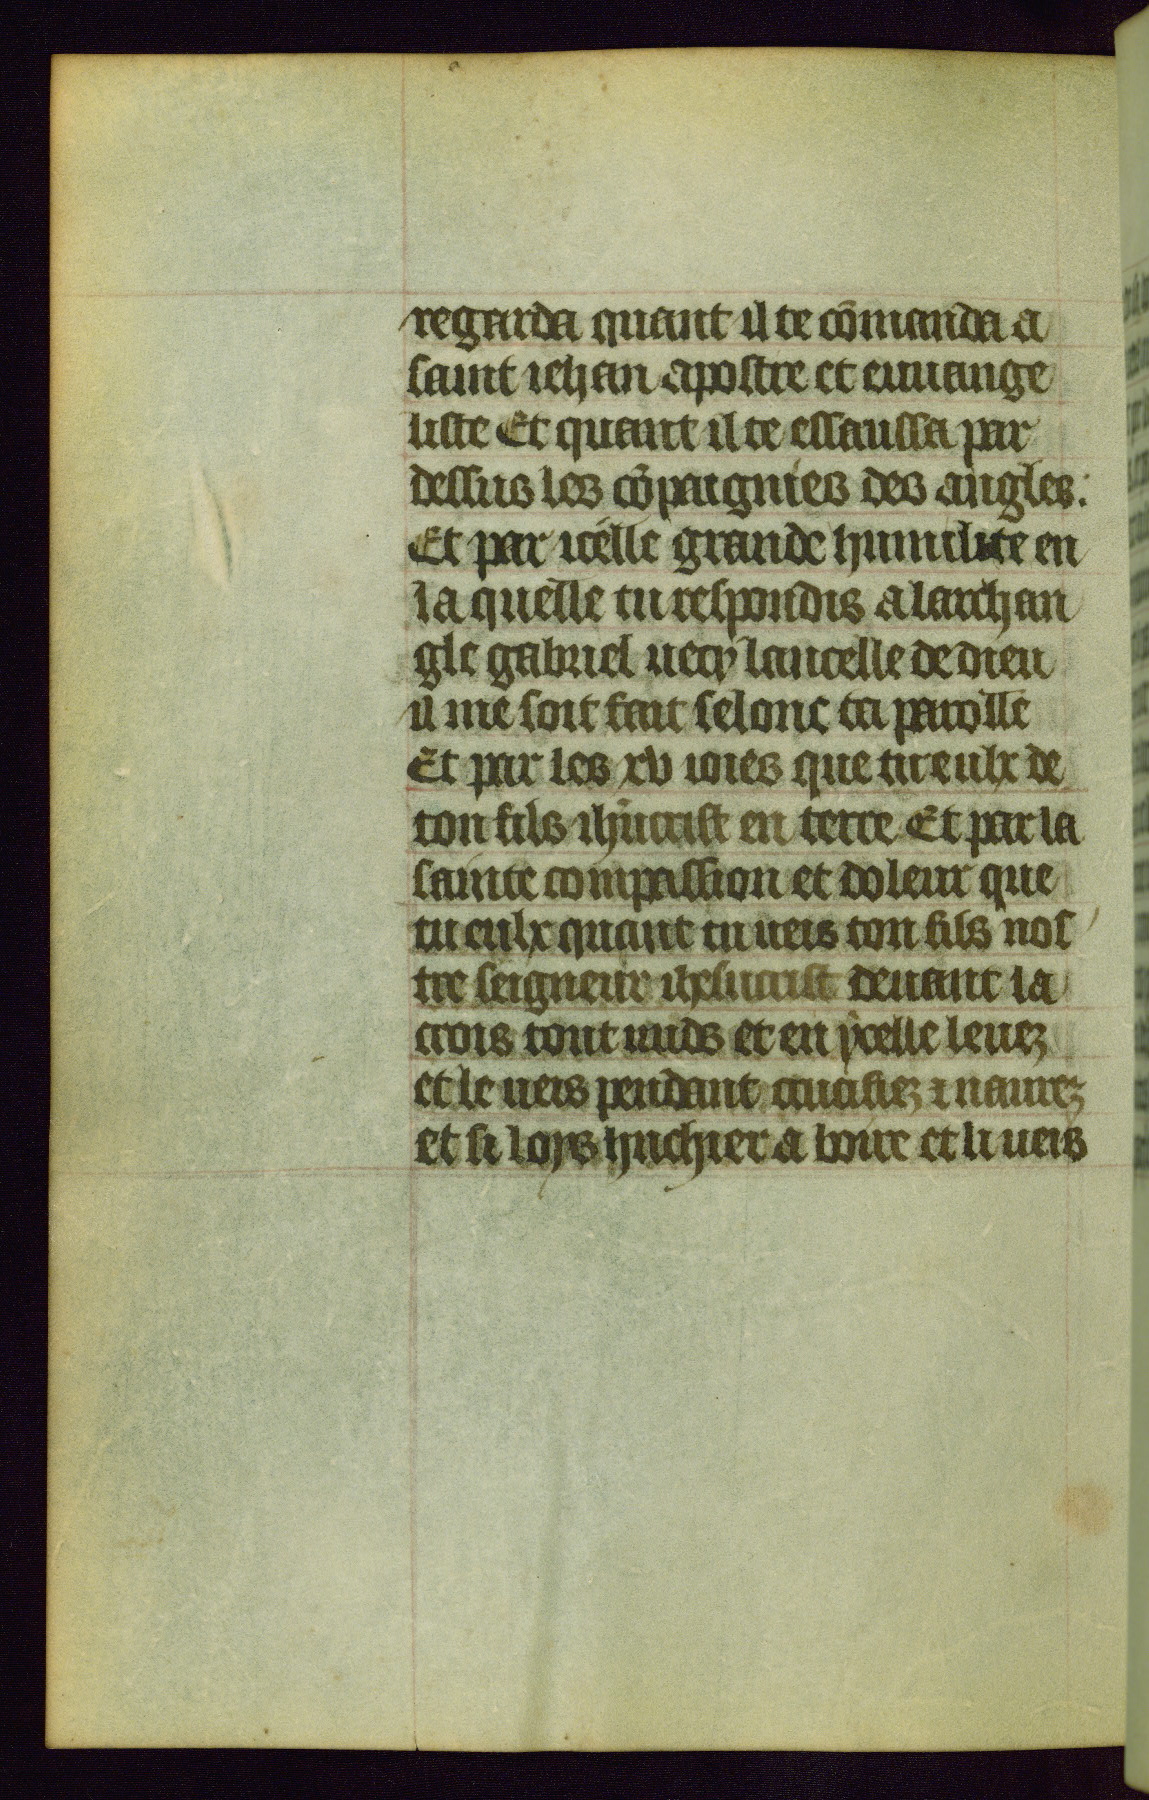 regarda quant il te cōmanda a
saint iehan apostre et euuange
liste Et quant il te essaussa par
dessus les cōpaignies des angles.
Et par icelle grande humilite en
la quelle tu respondis a larchan
gle gabriel uecy lancelle de dieu
il me soit fait selonc ta parolle
Et par les xv ioies que tu eulx de
ton fils ihūcrist en terre Et par la
sainte compassion et doleur que
tu eulx quant tu ueis ton fils nos
tre seigneur ihesucrist deuant la
crois tout nuds et en ycelle leuez
et le ueis pendant crucifiez ⁊ naurez
et si loys huchier a boire et li ueis